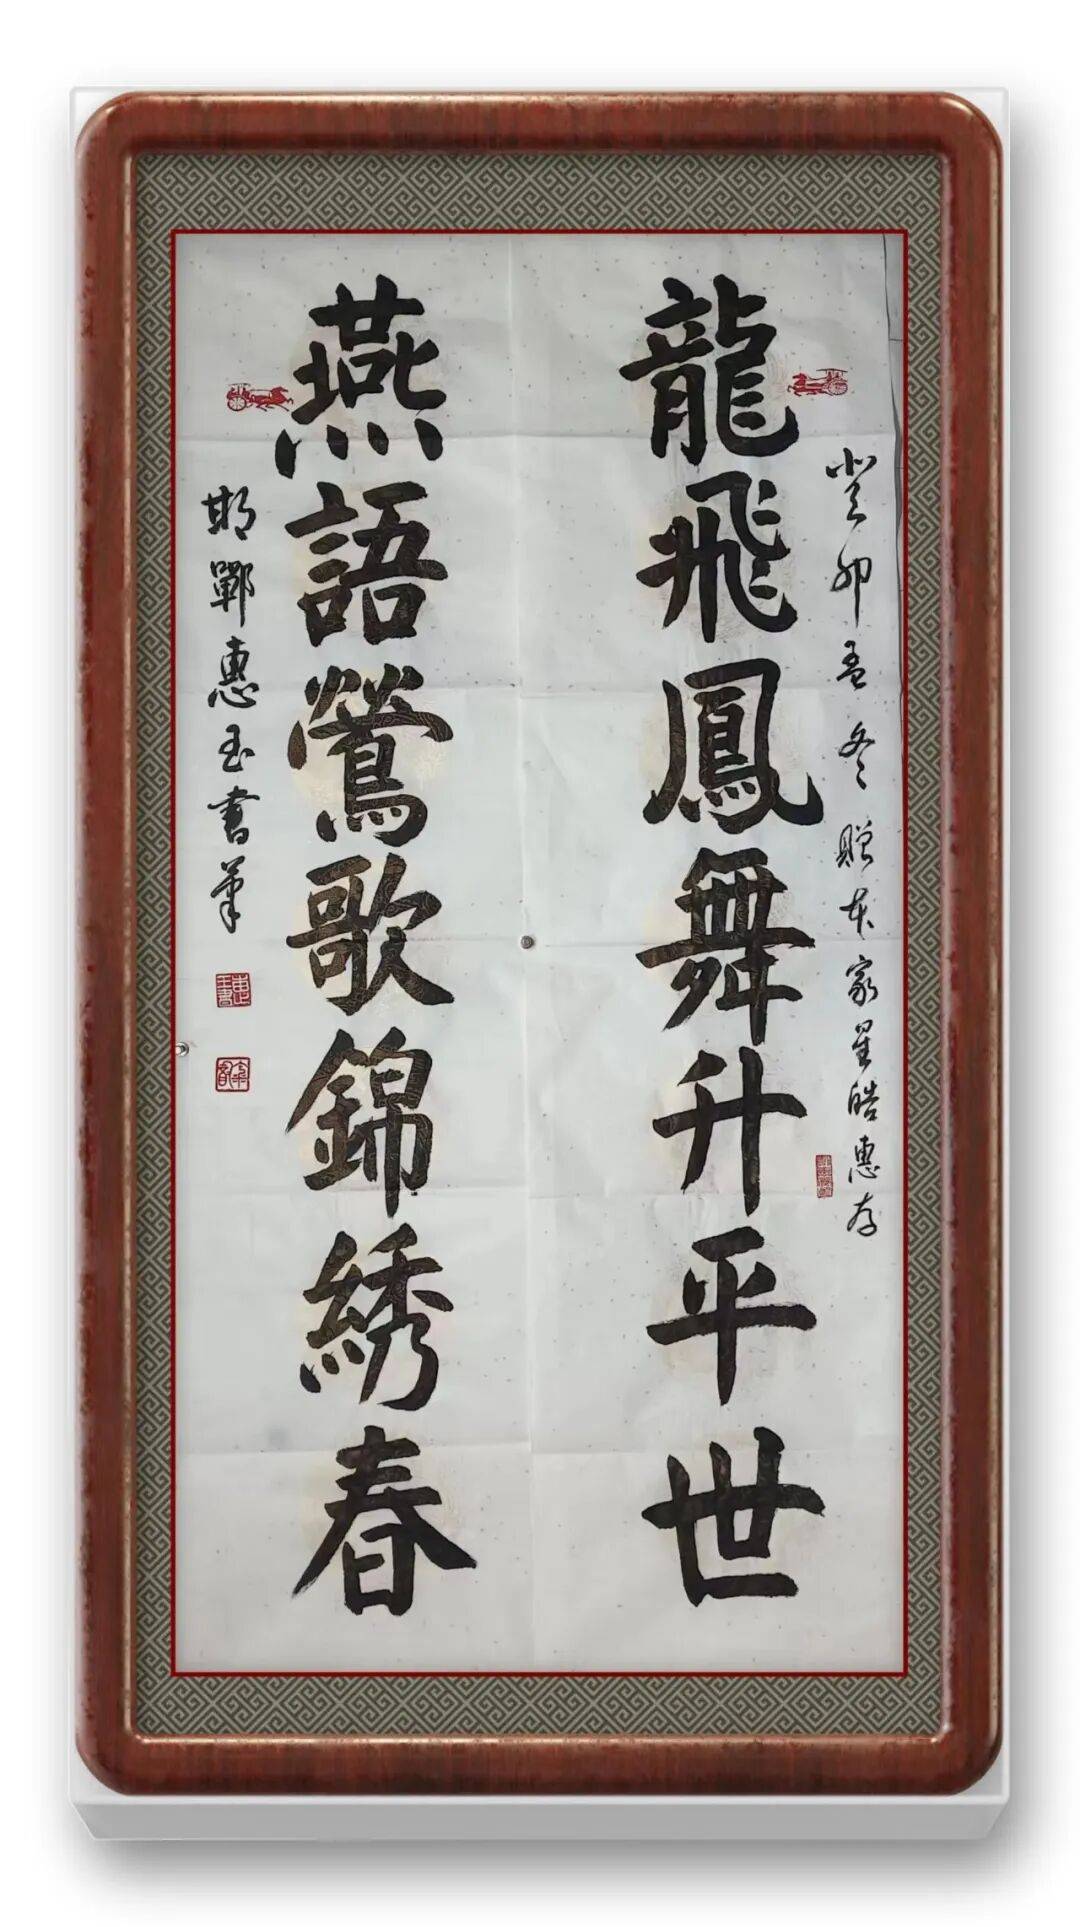 癸卯孟冬 贈本家星皓惠存
龍飛鳳舞升平世
燕語鶯歌錦綉春
邯鄲惠玉書筆